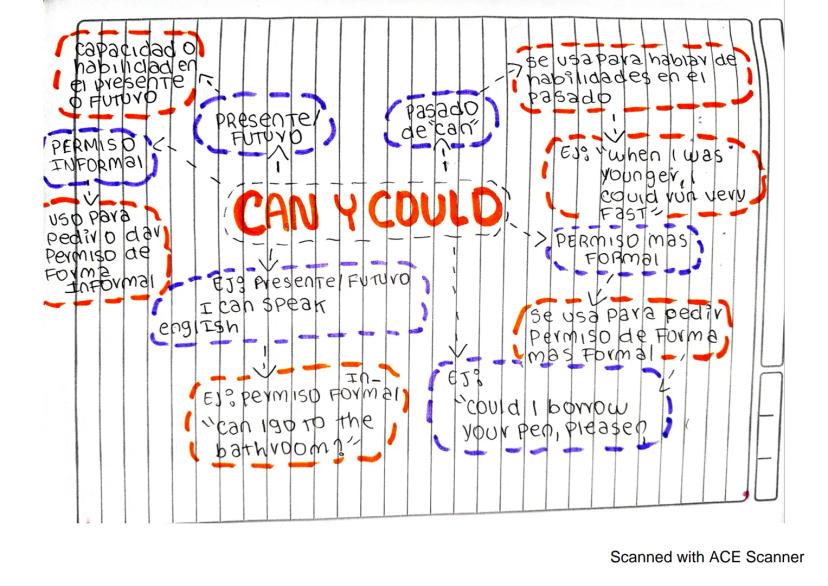 CAPACIDAD O
habilidad en
el presente
O FUTURO
PRESENTE/
FUTURO
PASADO
de "can"
se usa para hablar de
habilidades en el
pasado
PERMISO
INFORMAL
EJ: "when I was
younger, I
could run very
FAST"
CAN Y COULD
USO para
pedir o dar
permiso de
FORMA
InFormal
PERMISO mas
FORMAL
EJ: Presente/FUTURO
I can speak
english
se usa para pedir
Permiso de Forma
mas Formal
EJ: permiso InFormal
"Can I go to the
bathroom?"
EJ:
"Could I borrow
your pen, please?
Scanned with ACE Scanner